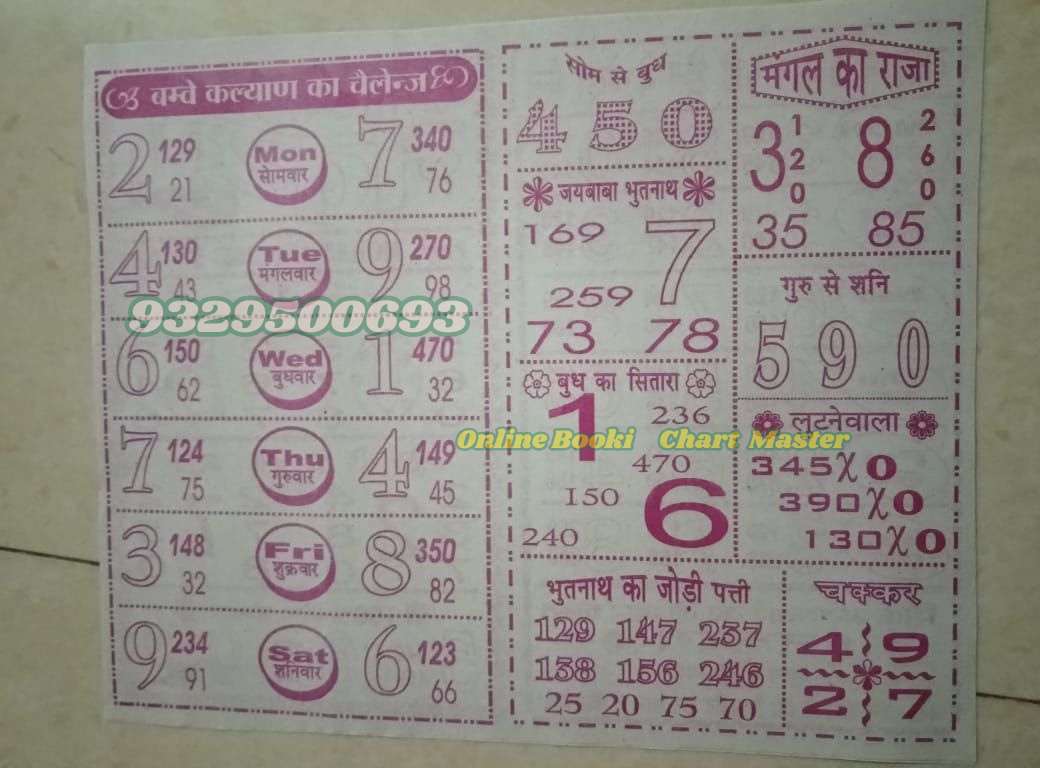 वम्वे कल्याण का चैलेन्ज
2 129 Mon 7 340
21 सोमवार 76
4 130 Tue 9 270
43 मंगलवार 98
9329500693
6 150 Wed 1 470
62 बुधवार 32
7 124 Thu 4 149
75 गुरुवार 45
3 148 Fri 8 350
32 शुक्रवार 82
9 234 Sat 6 123
91 शनिवार 66
सोम से बुध
4 5 0
जयबाबा भुतनाथ
169 7
259
73 78
बुध का सितारा
1 236
Online Booki Chart Master
470
150 6
240
मंगल का राजा
3 120 8 260
35 85
गुरु से शनि
5 9 0
लुटनेवाला
345X0
390X0
130X0
भुतनाथ का जोड़ी पत्ती
129 147 237
138 156 246
25 20 75 70
चक्कर
4 9
2 7